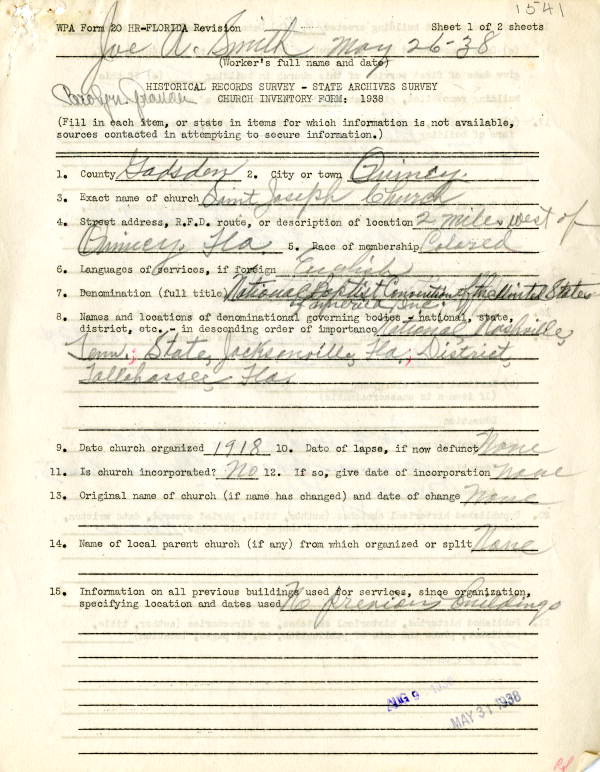 1541
WPA Form 20 HR-FLORIDA Revision Sheet 1 of 2 sheets
Joe A. Smith May 26-38
(Worker's full name and date)
HISTORICAL RECORDS SURVEY - STATE ARCHIVES SURVEY
CHURCH INVENTORY FORM: 1938
(Fill in each item, or state in items for which information is not available,
sources contacted in attempting to secure information.)
1. County Gadsden 2. City or town Quincy
3. Exact name of church Saint Joseph Church
4. Street address, R.F.D. route, or description of location 2 miles west of
Quincy, Fla 5. Race of membership Colored
6. Languages of services, if foreign English
7. Denomination (full title) National Baptist Convention of the United States
of America Inc.
8. Names and locations of denominational governing bodies - national, state,
district, etc. - in descending order of importance National Nashville,
Tenn; State, Jacksonville, Fla; District,
Tallahassee, Fla.
9. Date church organized 1918 10. Date of lapse, if now defunct None
11. Is church incorporated? No 12. If so, give date of incorporation None
13. Original name of church (if name has changed) and date of change None
14. Name of local parent church (if any) from which organized or split None
15. Information on all previous buildings used for services, since organization,
specifying location and dates used No previous buildings
AUG 9 1938
MAY 31 1938